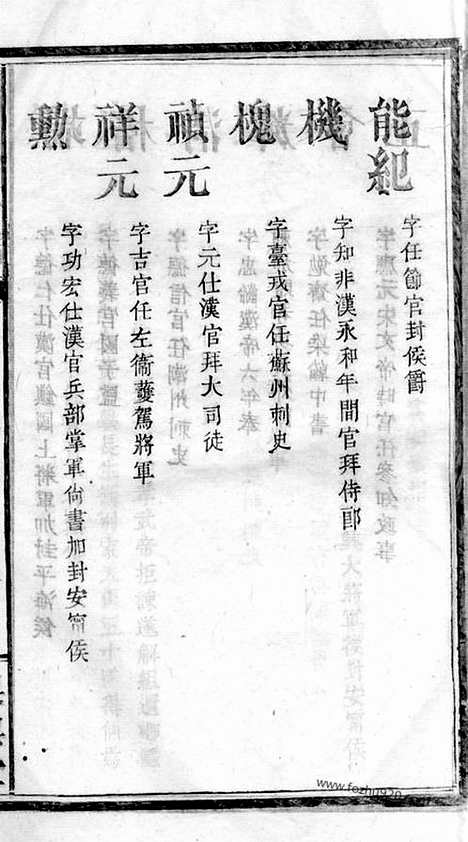 能紀
字任節官封侯爵
機
字知非漢永和年間官拜侍郎
槐
字臺戎官任蘇州刺史
禎元
字元仕漢官拜大司徒
祥元
字吉官任左衞護駕將軍
勲
字功宏仕漢官兵部掌軍尙書加封安甯侯
www.fozhu920.com